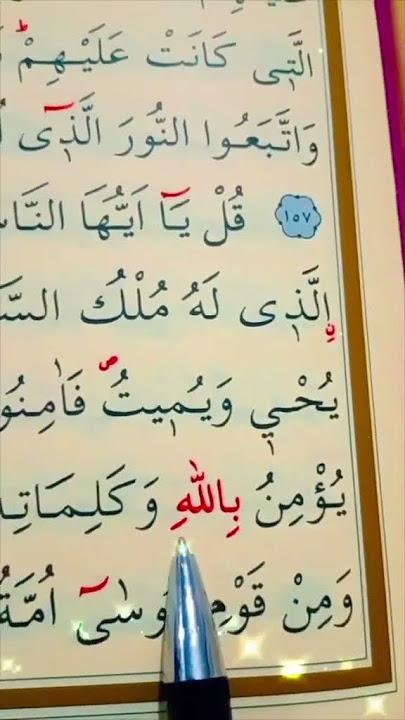 الَّتٖى كَانَتْ عَلَيْهِمْ
وَاتَّبَعُوا النُّورَ الَّذٖٓى
١٥٧ قُلْ يَٓا اَيُّهَا النَّاس
اِلَّذٖى لَهُ مُلْكُ السَّ
يُحْيٖ وَيُمٖيتُ فَاٰمِنُو
يُؤْمِنُ بِاللّٰهِ وَكَلِمَاتِهٖ
وَمِنْ قَوْمِ وسٰٓى اُمَّةٌ